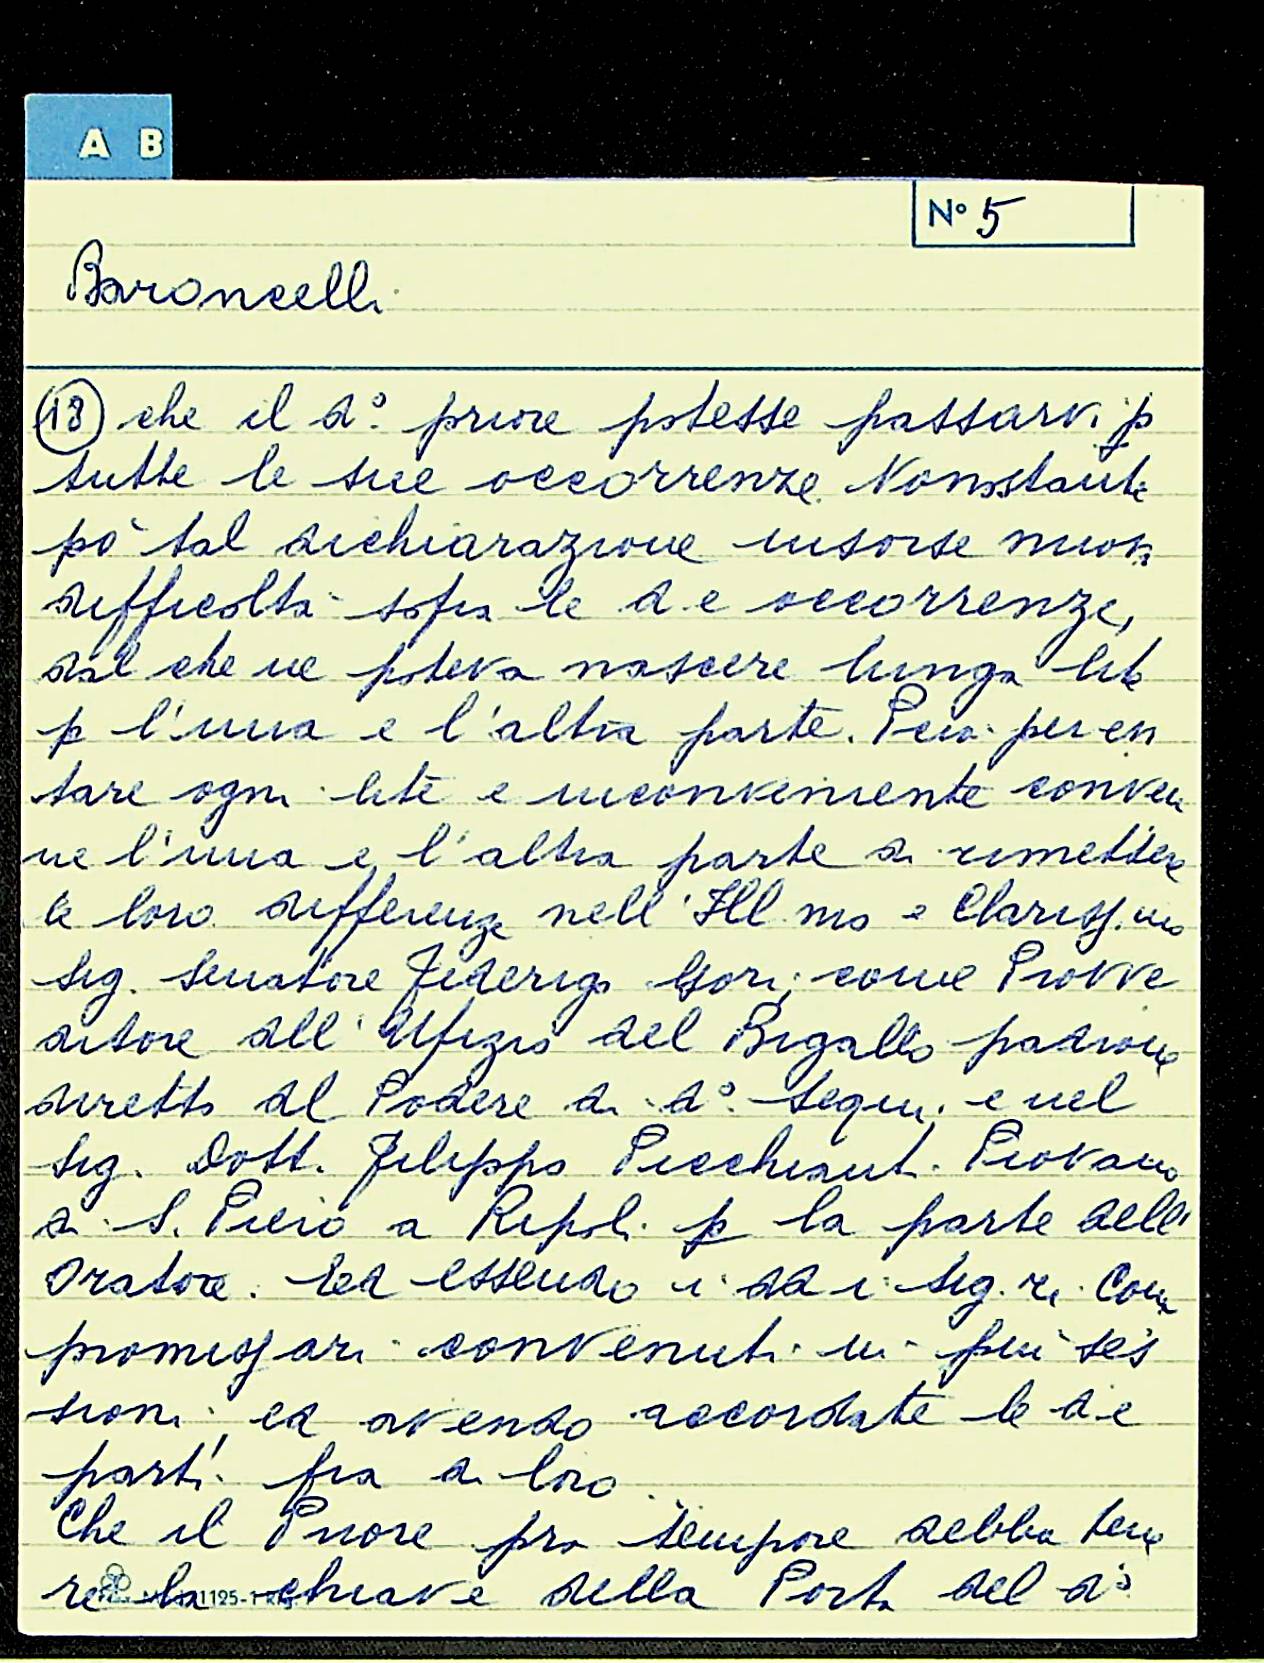 A B
N° 5
Baroncelli
(18) che il d° priore potesse passarvi p
tutte le sue occorrenze. Nonostante
pò tal dichiarazione insorse nuova
difficoltà sopra le d.e occorrenze,
dal che ne poteva nascere lunga lite
p l'una e l'altra parte. Però per evi
tare ogni lite e inconveniente conven
ne l'una e l'altra parte di rimettere
le loro differenze nell'Ill mo e Clariss.mo
Sig. Senatore Federigo Gori, come Provve
ditore all'Ufizio del Bigallo padrone
diretto al Podere di d° Sequi, e nel
Sig. Dott. Filippo Picchianti Piovano
di S. Piero a Ripoli p la parte dell'
Oratore. Ed essendo i dd i Sig.ri Com
promissari convenuti in più ses
sioni, ed avendo accordate le d.e
parti fra di loro.
Che il Priore pro tempore debba tene
re la chiave della Porta del d°